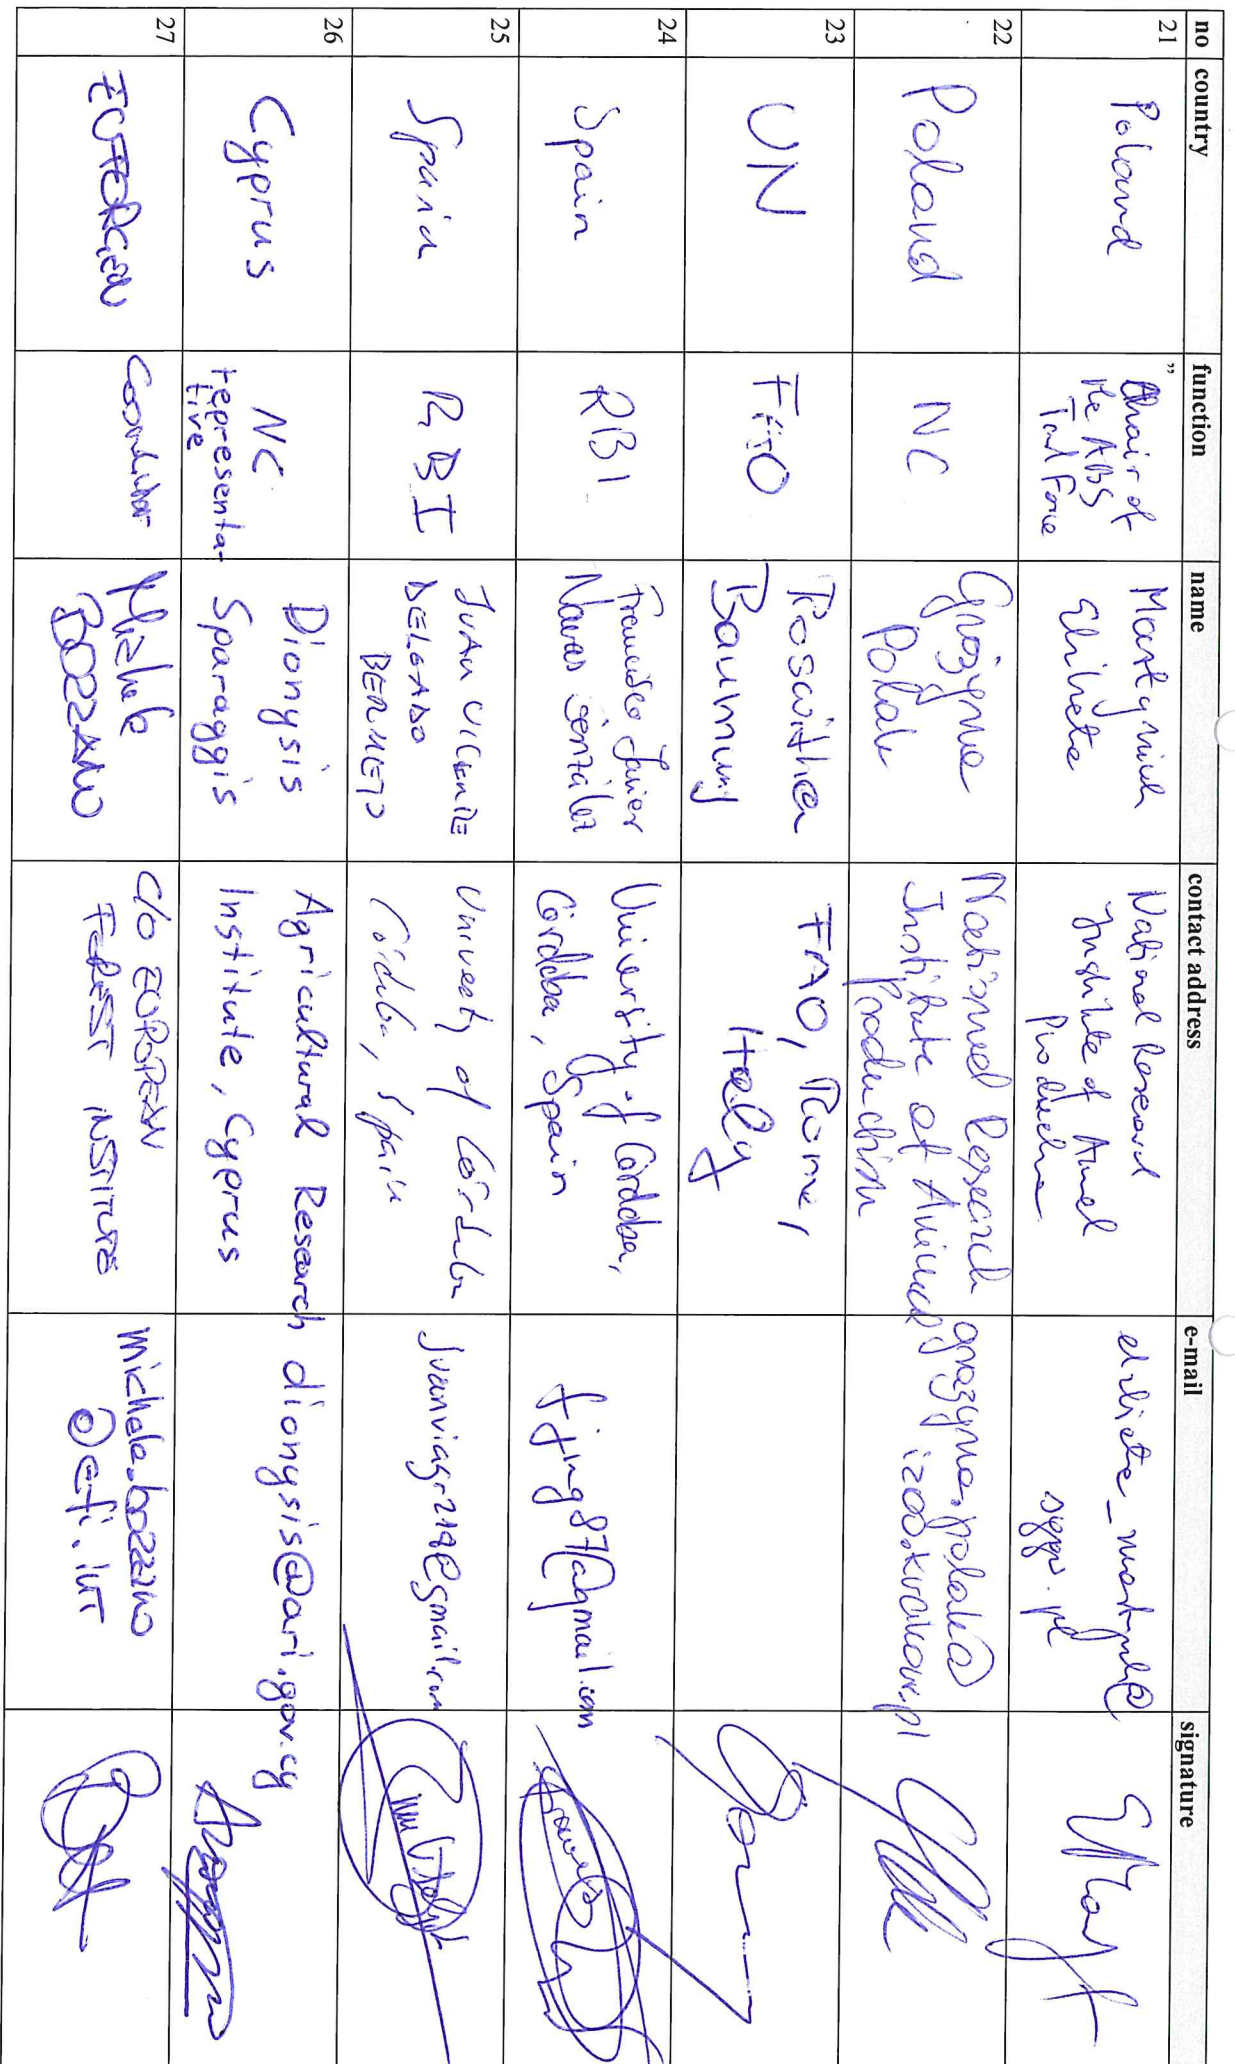 no country function name contact address e-mail signature
21
Poland
"
Chair of
the ABS
Task Force
Martyniuk
Elżbieta
National Research
Institute of Animal
Production
elzbieta_martyniuk@
sggw.pl
22
Poland
NC
Grażyna
Polak
National Research
Institute of Animal
Production
grazyna.polak@
izoo.krakow.pl
23
UN
FAO
Roswitha
Baumung
FAO, Rome,
Italy
24
Spain
RBI
Francisco Javier
Navas González
University of Córdoba,
Córdoba, Spain
fjng87@gmail.com
25
Spain
RBI
JUAN VICENTE
DELGADO
BERMEJO
University of Córdoba
Córdoba, Spain
juanviagr218@gmail.com
26
Cyprus
NC
representa-
tive
Dionysis
Sparaggis
Agricultural Research
Institute, Cyprus
dionysis@ari.gov.cy
27
EUFORGEN
Coordinator
Michele
BOZZANO
c/o EUROPEAN
FOREST INSTITUTE
michele.bozzano
@efi.int